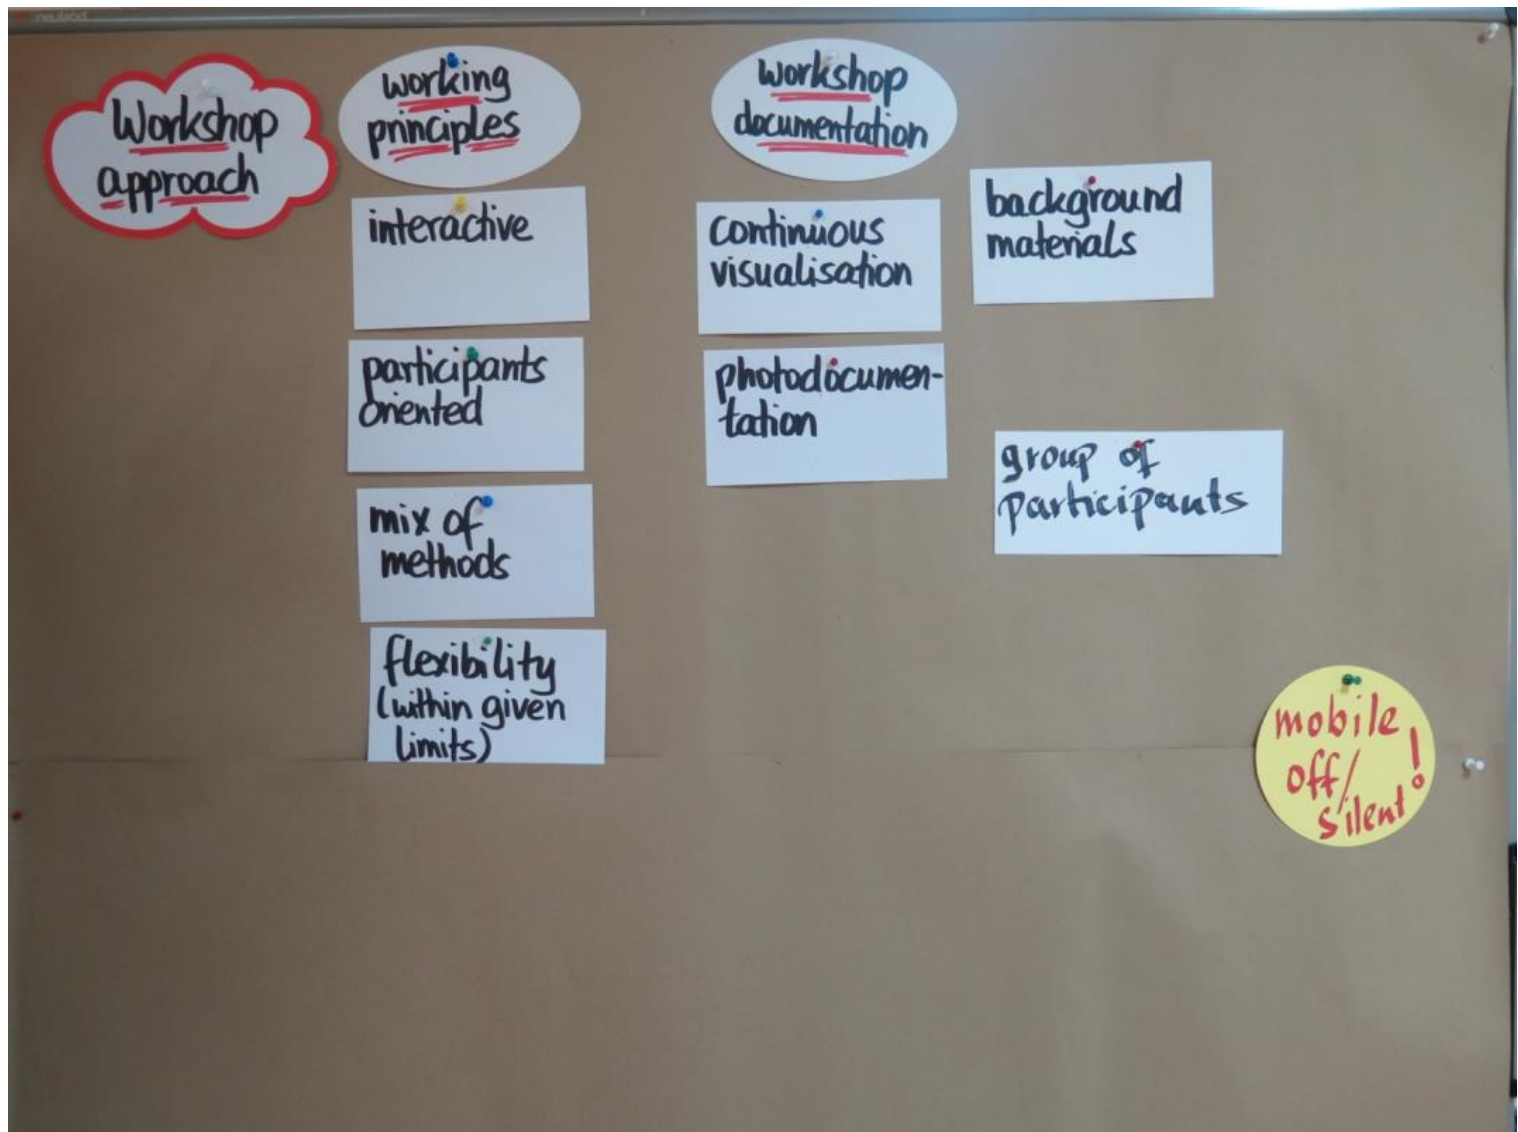 Workshop
approach
working
principles
interactive
participants
oriented
mix of
methods
flexibility
(within given
limits)
workshop
documentation
continuous
visualisation
photodocumen-
tation
background
materials
group of
participants
mobile
off/
silent!